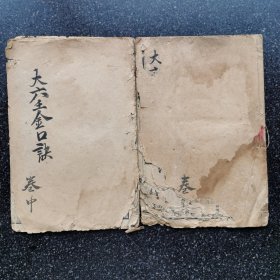 大六壬金口訣
卷中
大
卷